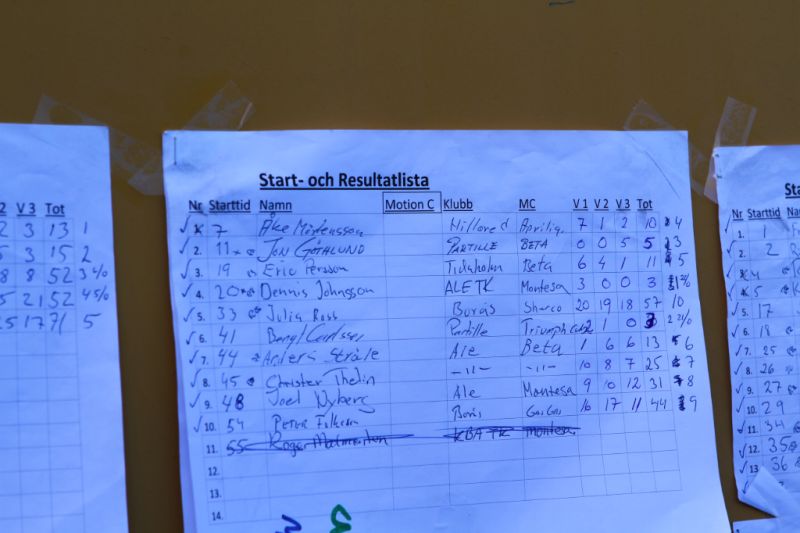 2 V 3 Tot
2 3 13 1
5 3 15 2
8 8 52 3
5 21 52 4
25 17 71 5
Start- och Resultatlista
Nr Starttid Namn Motion C Klubb MC V 1 V 2 V 3 Tot
7 Åke Mårtensson Hillared Aprilia 7 1 2 10 4
2. 11 Jon Göthlund Partille Beta 0 0 5 5 3
3. 19 Eric Persson Tidaholm Beta 6 4 1 11 5
4. 20 Dennis Johnsson ALETK Montesa 3 0 0 3
5. 33 Julia Ross Borås Sherco 20 19 18 57 10
6. 41 Bengt Carlsson Partille Triumph 2 1 0 3
7. 44 Anders Stråle Ale Beta 1 6 6 13 6
8. 45 Christer Thelin -"- -"- 10 8 7 25 7
9. 48 Joel Nyberg Ale Montesa 9 10 12 31 8
10. 54 Peter Borås GasGas 16 17 11 44 9
11. 55 Roger KBATK Montesa
12.
13.
14.
Sta
Nr Starttid Nam
1. 1
2. 2
4
5
5. 17
6. 18
7. 25
8. 26
9. 27
10. 29
11. 34
12. 35
13 36